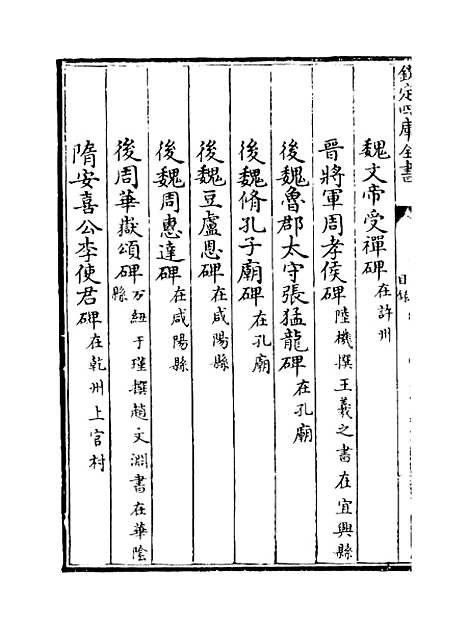 欽定四庫全書
目錄
魏文帝受禪碑在許州
晉將軍周孝侯碑陸機撰王羲之書在宜興縣
後魏魯郡太守張猛龍碑在孔廟
後魏脩孔子廟碑在孔廟
後魏豆盧恩碑在咸陽縣
後魏周惠達碑在咸陽縣
後周華嶽頌碑万紐于瑾撰趙文淵書在華陰縣
隋安喜公李使君碑在乾州上官村